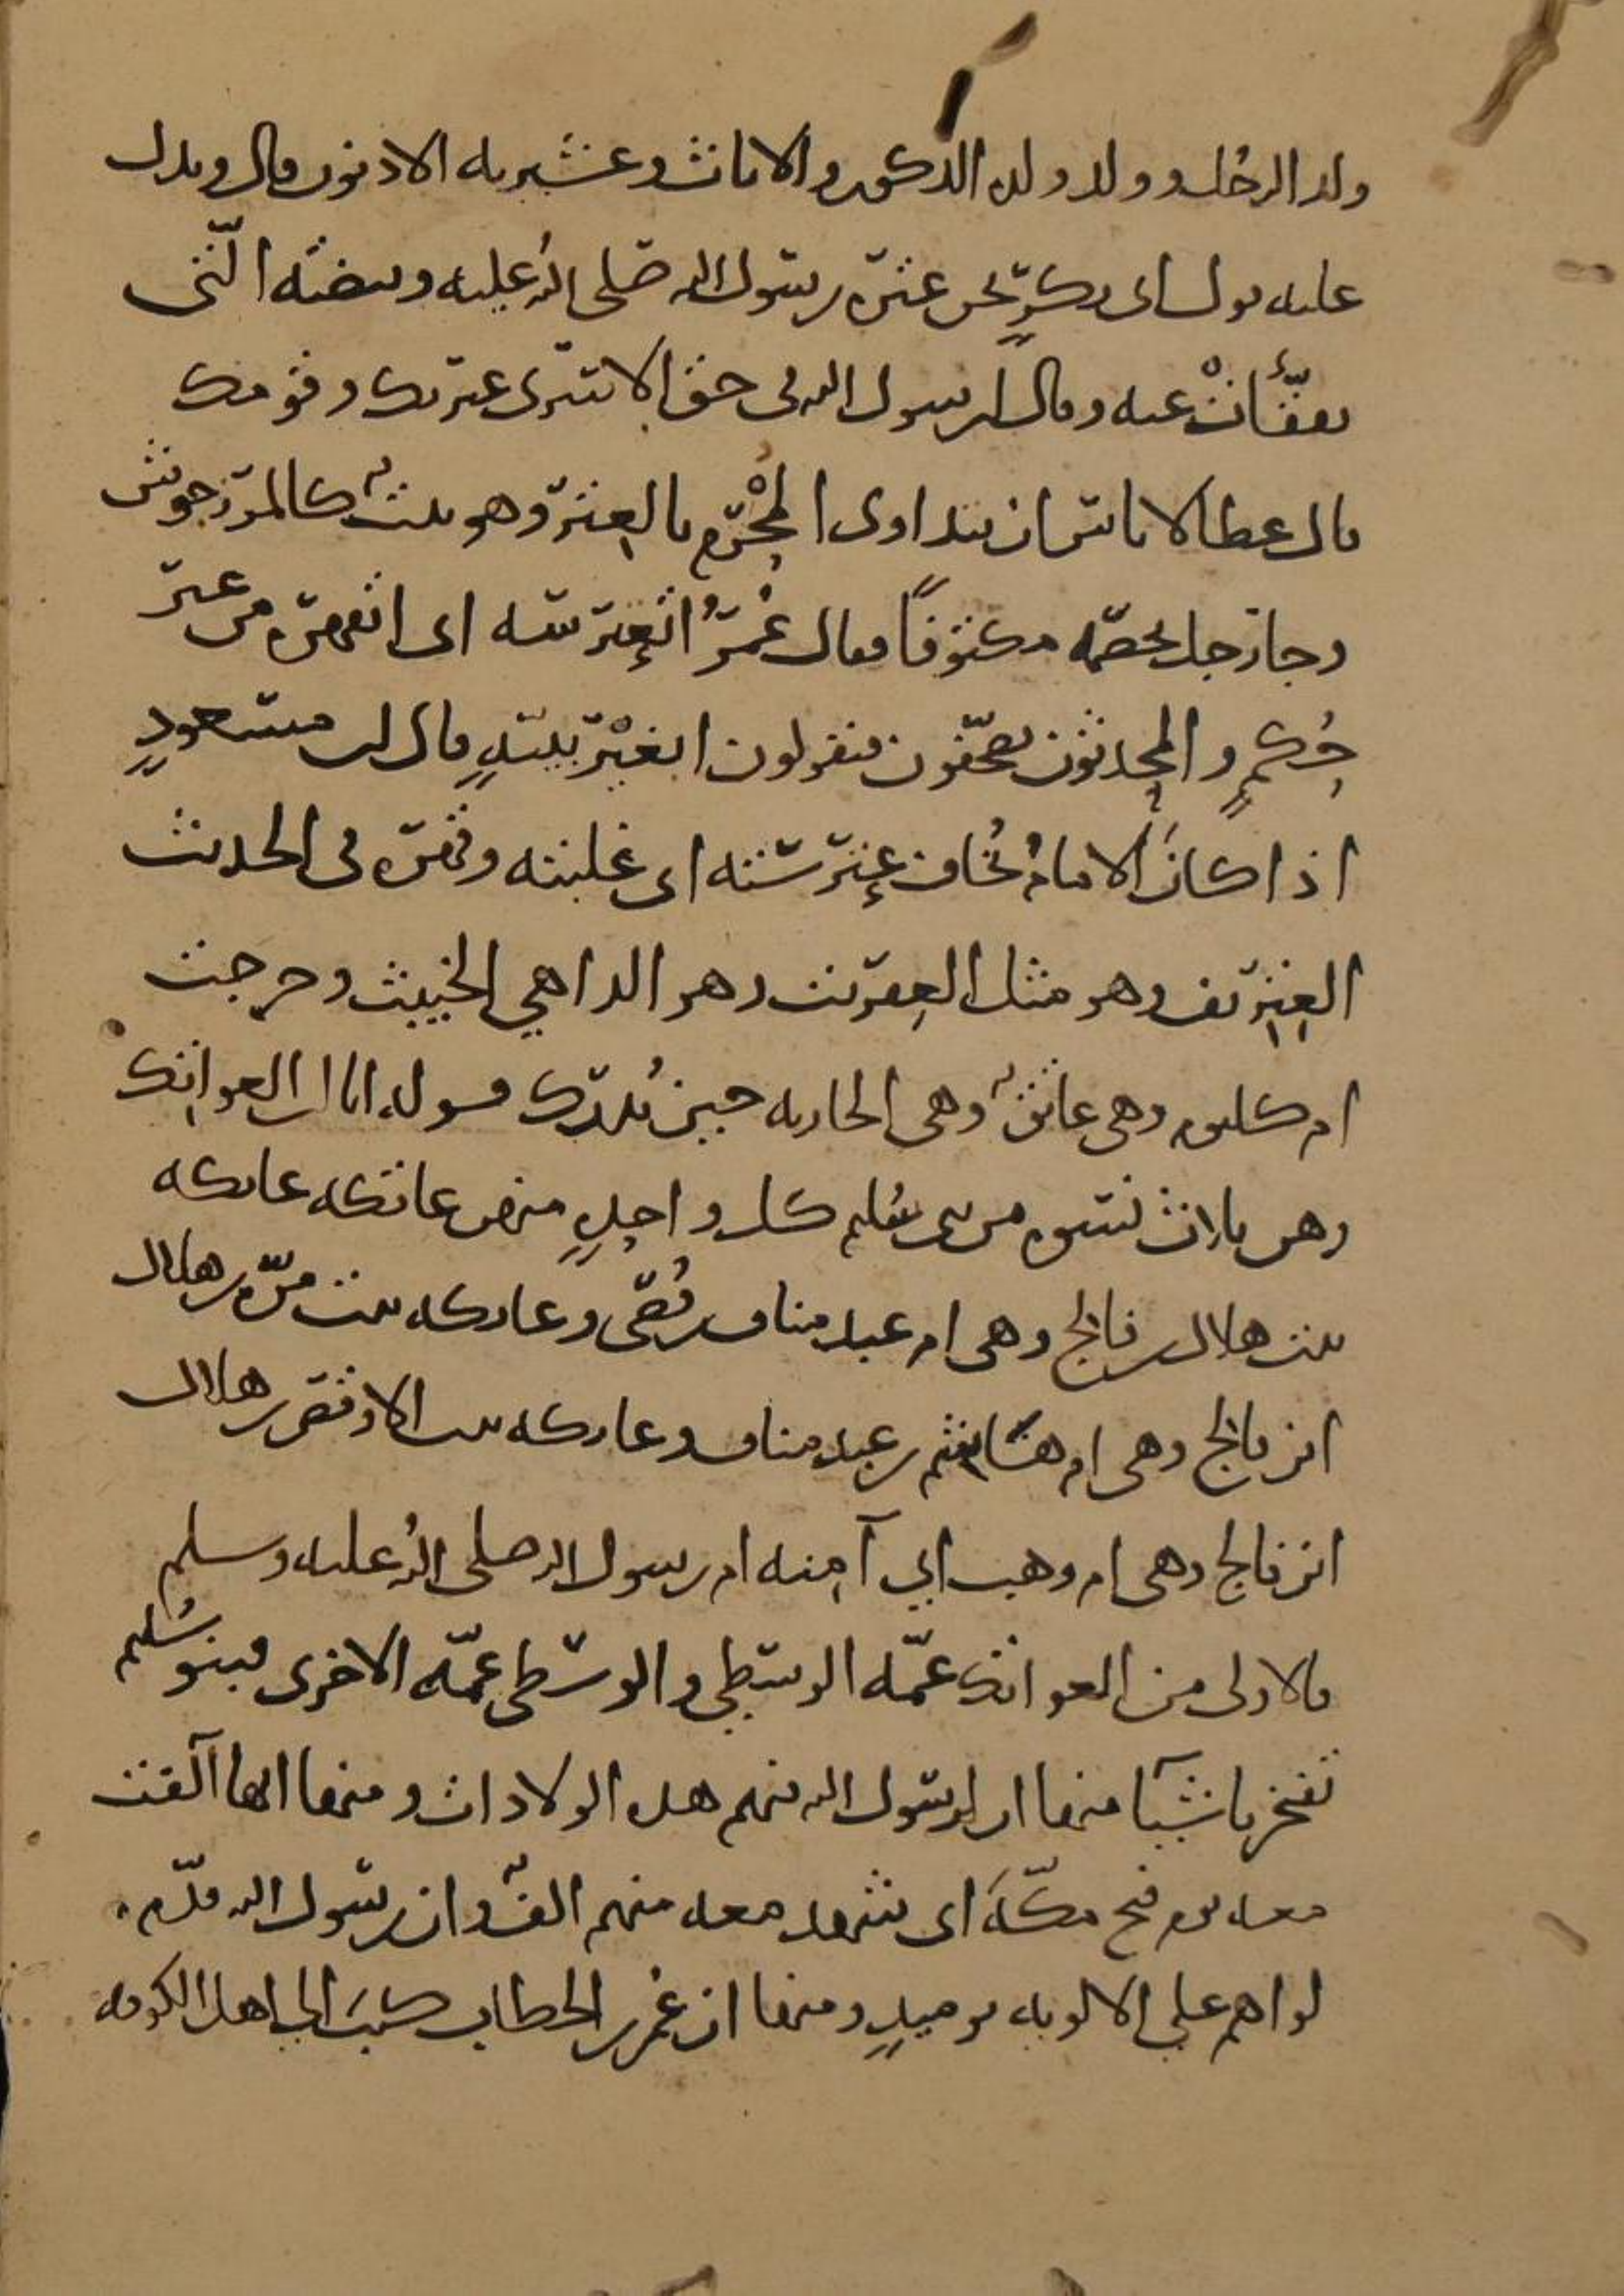 ولد الرجل وولد ولده الذكور والاناث وعشيرته الادنون قال ويدل
عليه قول ابى بكرٍ نحن عترة رسول الله صلى الله عليه وبيضته التى
تفقّأت عنه وقال لرسول الله فى حق الاسرى عترتك وقومك
قال عطا لا باس ان يتداوى المحْرم بالعِترة وهو نبتٌ كالمرزجوش
وجا رجل بخصمه مكتوفًا فقال عُمَرُ اتُعِترسه اى اتقهره من غير
حُكمٍ والمحدثون يصحّفون فيقولون ابغيْر بينةٍ قال ابن مسعودٍ
اذا كان الامامُ تُخاف عِترسته اى غلبته وقهره فى الحديث
العِتريف وهو مثل العِفريت وهو الداهي الخبيث وخرجت
ام كلثوم وهى عاتقٌ وهى الجاريه حين تُدرك قوله انا ابن العواتك
وهن ثلاث نسوه من بنى سُليم كل واحدٍ منهن عاتكه عاتكه
بنت هلال بن فالج وهى ام عبد مناف بن قُصّى وعاتكه بنت مرّه بن هلال
ابن فالج وهى ام هاشم بن عبد مناف وعاتكه بنت الاوقص بن هلال
ابن فالج وهى ام وهب ابي آمنه ام رسول الله صلى الله عليه وسلم
فالاولى من العواتك عمّه الوسطى والوسطى عمّه الاخرى فبنو سُليم
تفخر باشيآ منها ان لرسول الله فيهم هذه الولادات ومنها انها آلفت
معه يوم فتح مكّة اى شهد معه منهم الفٌ وان رسول الله قدّم
لواهم على الالويه يوميذٍ ومنها ان عُمر بن الخطاب كتب الى اهل الكوفه